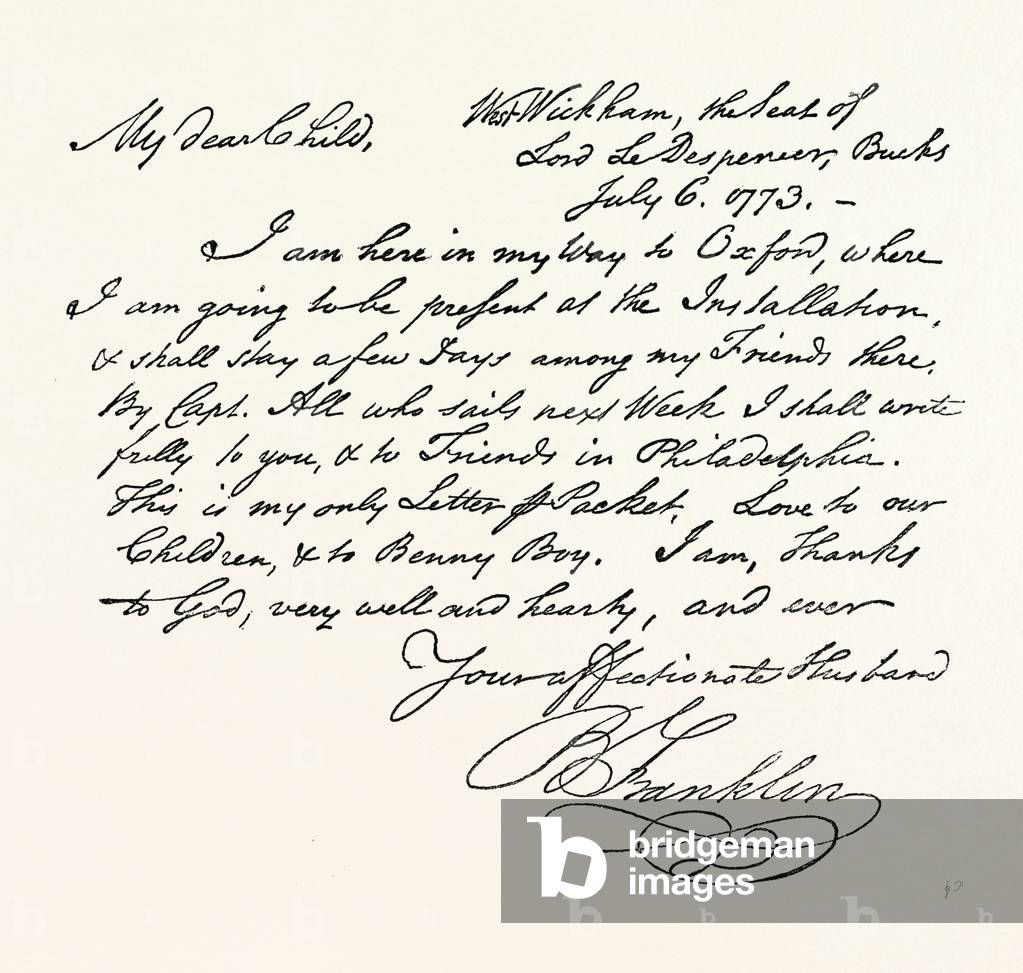 My dear Child,
West Wickham, the Seat of
Lord Le Despencer, Bucks
July 6. 1773. —
I am here in my Way to Oxford, where
I am going to be present at the Installation,
& shall stay a few Days among my Friends there.
By Capt. All who sails next Week I shall write
fully to you, & to Friends in Philadelphia.
This is my only Letter ⅌ Packet. Love to our
Children, & to Benny Boy. I am, Thanks
to God, very well and hearty, and ever
Your affectionate Husband
B Franklin
bridgeman
images